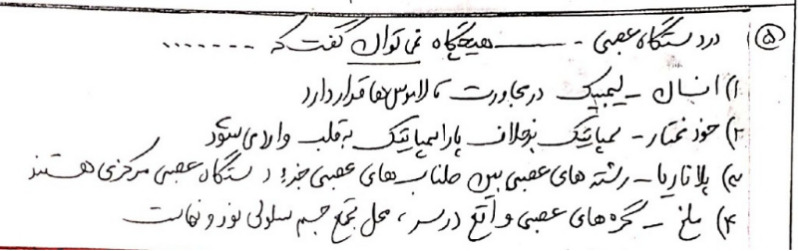 ۵) در دستگاه عصبی - ـــــــ هیچگاه نمی توان گفت که .......
۱) انسان - لیمبیک در مجاورت تالاموس ها قرار دارد
۲) خود مختار - سمپاتیک برخلاف پاراسمپاتیک به قلب وارد می شود
۳) پلاناریا - رشته های عصبی بین طناب های عصبی جزء دستگاه عصبی مرکزی هستند
۴) ملخ - گره های عصبی واقع در سر ، محل تجمع جسم سلولی نورونهاست